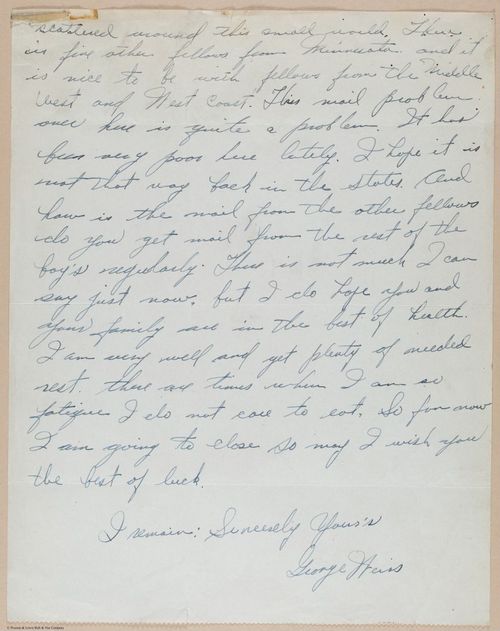 scattered around this small world. There
is five other fellows from Minnesota and it
is nice to be with fellows from the Middle
West and West Coast. This mail problem
over here is quite a problem. It has
been very poor here lately. I hope it is
not that way back in the States. And
how is the mail from the other fellows
do you get mail from the rest of the
boy's regularly. There is not much I can
say just now, but I do hope you and
your family are in the best of health.
I am very well and get plenty of needed
rest. there are times when I am so
fatigue I do not care to eat. So for now
I am going to close so may I wish you
the best of luck.
I remain: Sincerely Your's
George Weiss